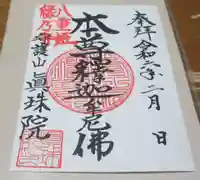 奉拝 令和六年二月 日
本尊釋迦牟尼佛
八重姫
守護山 眞珠院